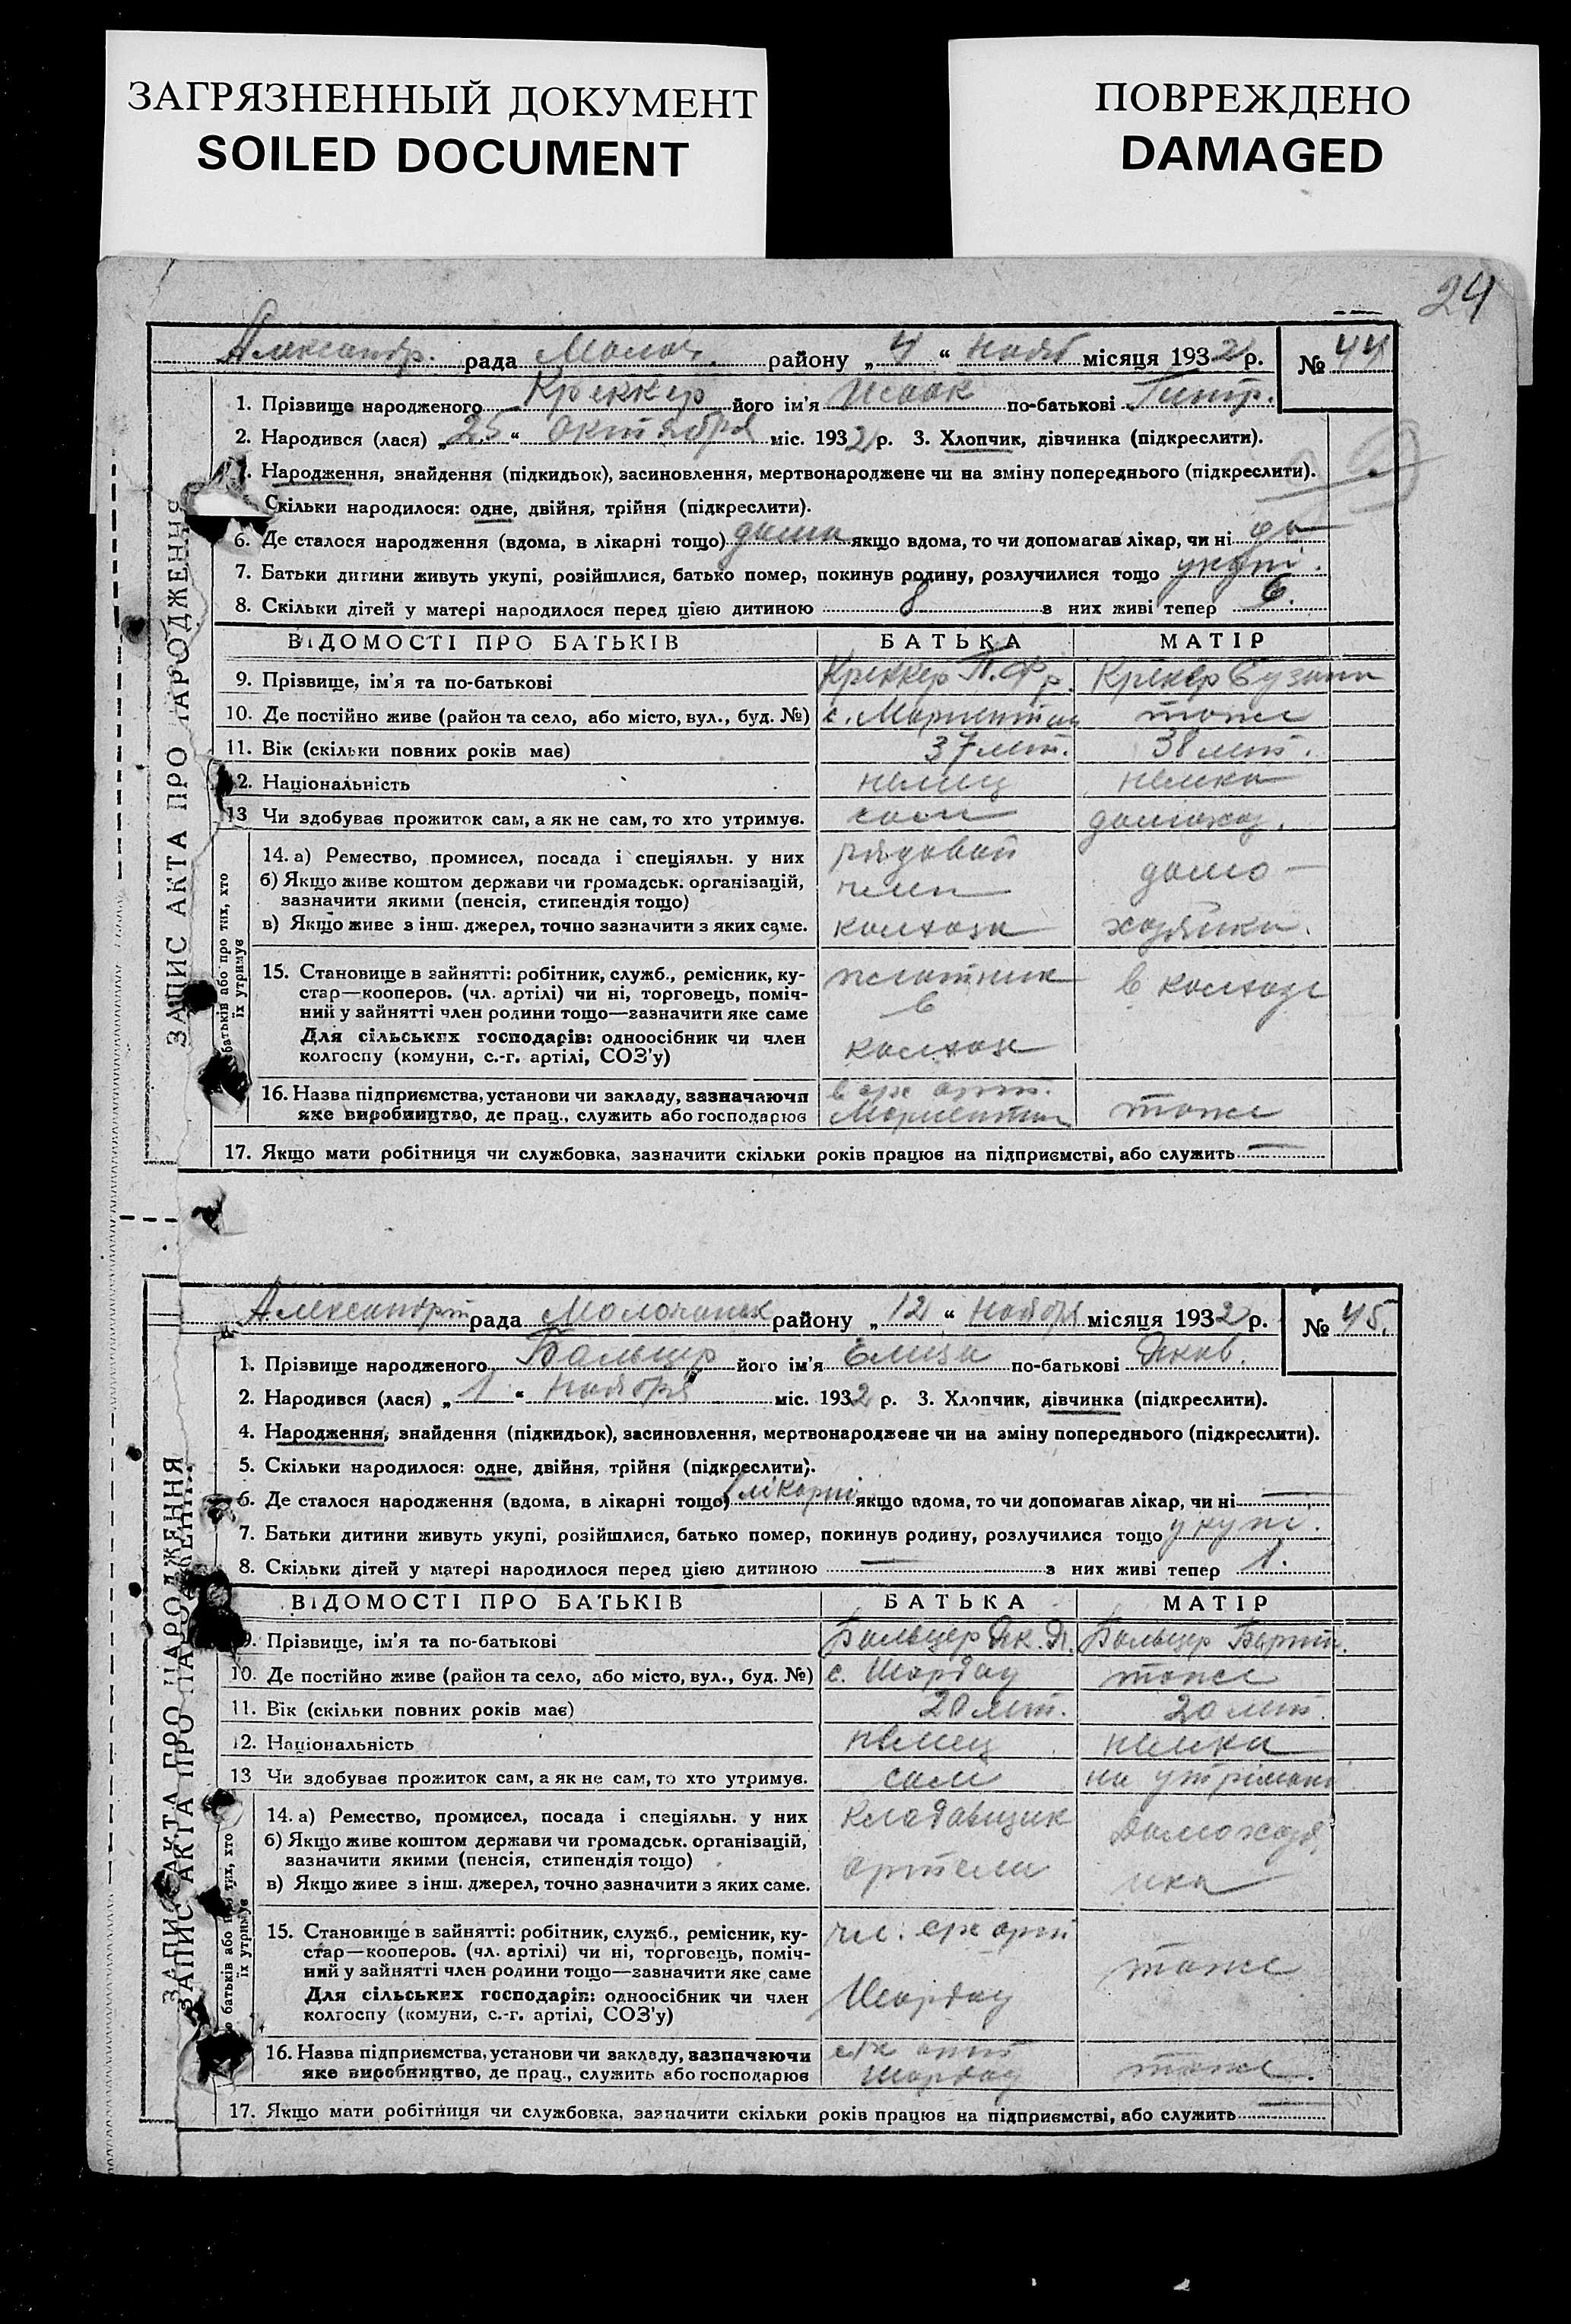 ЗАГРЯЗНЕННЫЙ ДОКУМЕНТ
SOILED DOCUMENT
ПОВРЕЖДЕНО
DAMAGED
24
Александр. рада Молоч. району „ 4 “ Нояб місяця 1932 р. № 44
1. Прізвище народженого Креккер його ім'я Исаак по-батькові
2. Народився (лася) „ 25 “ октября міс. 1932 р. 3. Хлопчик, дівчинка (підкреслити).
Народження, знайдення (підкидьок), засиновлення, мертвонароджене чи на зміну попереднього (підкреслити).
Скільки народилося: одне, двійня, трійня (підкреслити).
6. Де сталося народження (вдома, в лікарні тощо) дома якщо вдома, то чи допомагав лікар, чи ні
7. Батьки дитини живуть укупі, розійшлися, батько помер, покинув родину, розлучилися тощо укупі.
8. Скільки дітей у матері народилося перед цією дитиною 8 з них живі тепер 6.
ВІДОМОСТІ ПРО БАТЬКІВ БАТЬКА МАТІР
9. Прізвище, ім'я та по-батькові Креккер П. Фр. Крекер Сузанн
10. Де постійно живе (район та село, або місто, вул., буд. №) с. Мариенталь тоже
11. Вік (скільки повних років має) 37 лет. 38 лет.
12. Національність немец немка
13 Чи здобуває прожиток сам, а як не сам, то хто утримує. сам домохоз.
14. а) Ремество, промисел, посада і спеціяльн. у них рядовой домо-
б) Якщо живе коштом держави чи громадськ. організацій, член
зазначити якими (пенсія, стипендія тощо)
в) Якщо живе з інш. джерел, точно зазначити з яких саме. колхоза хозяйка.
15. Становище в зайнятті: робітник, служб., ремісник, ку- в колхозе
стар—кооперов. (чл. артілі) чи ні, торговець, поміч- в
ний у зайнятті член родини тощо—зазначити яке саме
Для сільських господарів: одноосібник чи член колхозе
колгоспу (комуни, с.-г. артілі, СОЗ'у)
16. Назва підприємства, установи чи закладу, зазначаючи в с/х арт.
яке виробництво, де прац., служить або господарює Мариенталь тоже
17. Якщо мати робітниця чи службовка, зазначити скільки років працює на підприємстві, або служить —
ЗАПИС АКТА ПРО НАРОДЖЕННЯ
батьків або про тих, хто
їх утримує
рада Молочанск району „ 12 “ Ноября місяця 1932 р. № 45.
1. Прізвище народженого Бальцер його ім'я Елиза по-батькові Яков.
2. Народився (лася) „ 1 “ Ноября міс. 1932 р. 3. Хлопчик, дівчинка (підкреслити).
4. Народження, знайдення (підкидьок), засиновлення, мертвонароджене чи на зміну попереднього (підкреслити).
5. Скільки народилося: одне, двійня, трійня (підкреслити).
6. Де сталося народження (вдома, в лікарні тощо) лікарні якщо вдома, то чи допомагав лікар, чи ні —
7. Батьки дитини живуть укупі, розійшлися, батько помер, покинув родину, розлучилися тощо укупі.
8. Скільки дітей у матері народилося перед цією дитиною — з них живі тепер 1.
ВІДОМОСТІ ПРО БАТЬКІВ БАТЬКА МАТІР
9. Прізвище, ім'я та по-батькові Бальцер Як. Я. Бальцер
10. Де постійно живе (район та село, або місто, вул., буд. №) с. Шардау тоже
11. Вік (скільки повних років має) 20 лет. 20 лет.
12. Національність немец немка
13 Чи здобуває прожиток сам, а як не сам, то хто утримує. сам на утрімані
14. а) Ремество, промисел, посада і спеціяльн. у них Кладавщик Домохозя
б) Якщо живе коштом держави чи громадськ. організацій,
зазначити якими (пенсія, стипендія тощо) артели
в) Якщо живе з інш. джерел, точно зазначити з яких саме. йка
15. Становище в зайнятті: робітник, служб., ремісник, ку- чл. с/х арт
стар—кооперов. (чл. артілі) чи ні, торговець, поміч-
ний у зайнятті член родини тощо—зазначити яке саме тоже
Для сільських господарів: одноосібник чи член Шардау
колгоспу (комуни, с.-г. артілі, СОЗ'у)
16. Назва підприємства, установи чи закладу, зазначаючи с/х арт
яке виробництво, де прац., служить або господарює Шардау тоже.
17. Якщо мати робітниця чи службовка, зазначити скільки років працює на підприємстві, або служить —
ЗАПИС АКТА ПРО НАРОДЖЕННЯ
батьків або про тих, хто
їх утримує